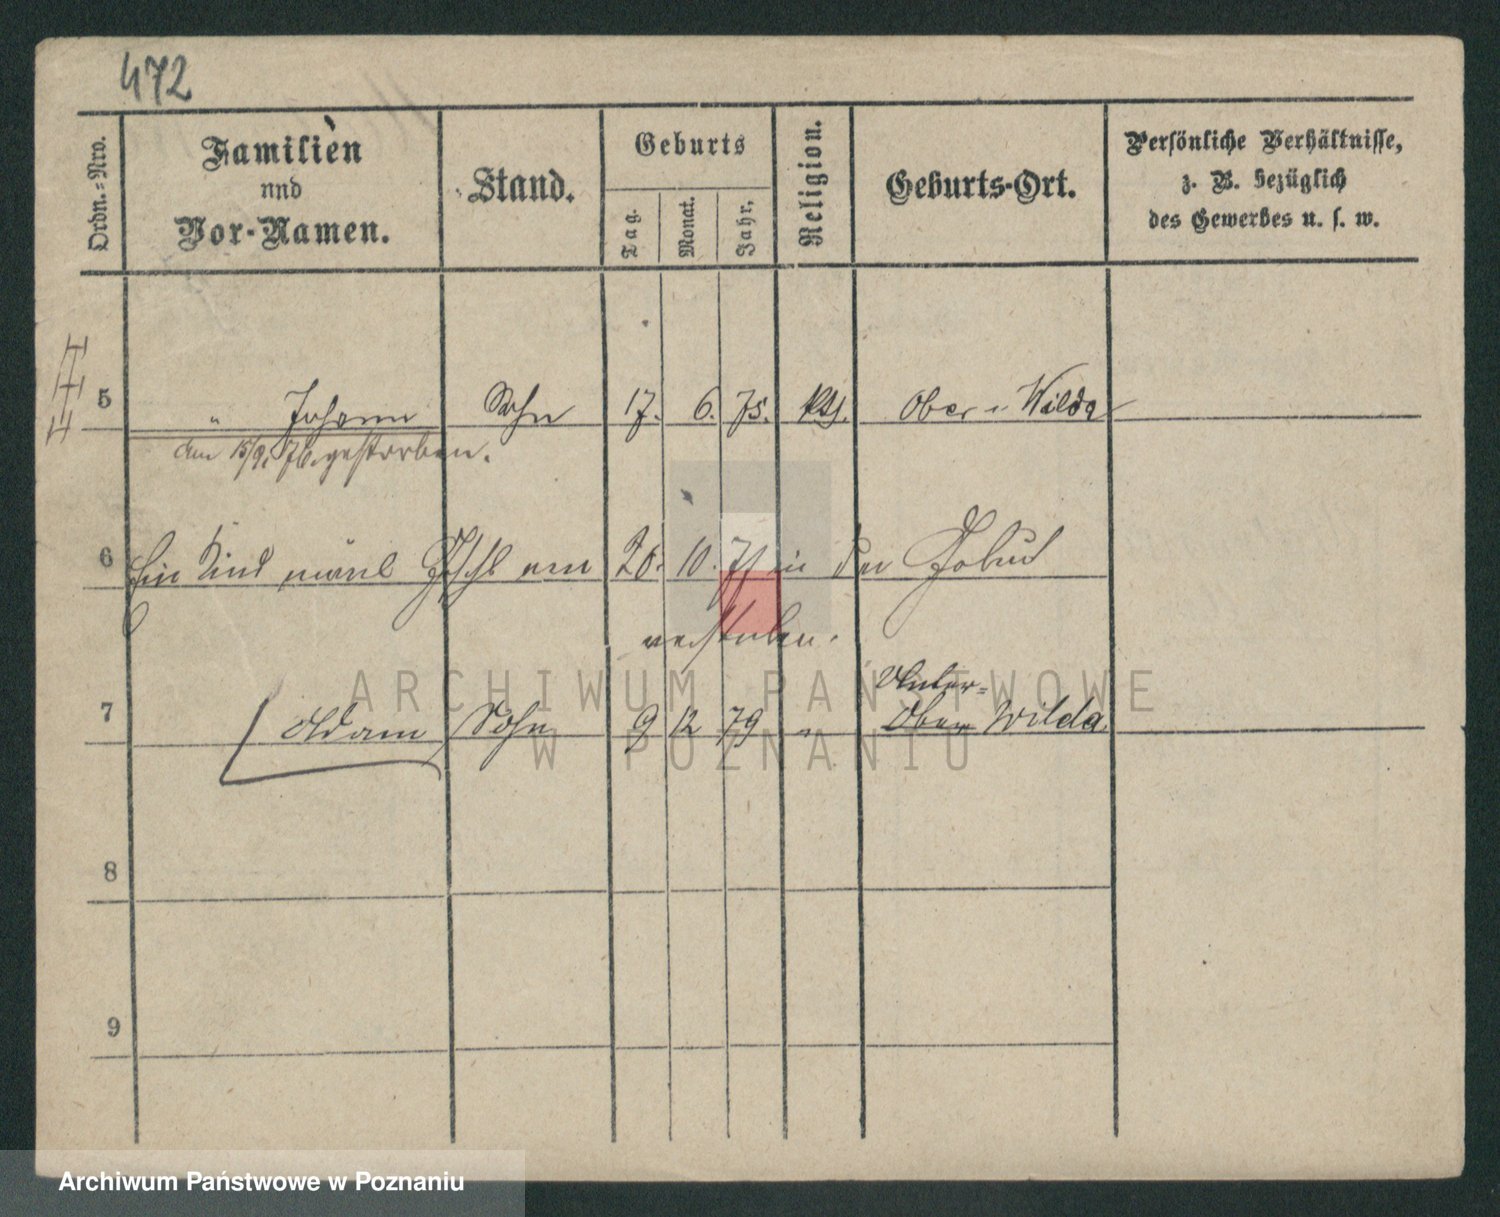 472
Ordn.=Nro.
Familien
und
Vor-Namen.
Stand.
Geburts
Tag.
Monat.
Jahr.
Religion.
Geburts-Ort.
Persönliche Verhältnisse,
z. B. bezüglich
des Gewerbes u. s. w.
5 " Johann Sohn 17. 6. 75. kth. Ober Wilda
am 15/9. 76. gestorben.
6 Ein Kind männl Geschl am 20. 10. 77 in der Geburt
verstorben.
Unter-
7 Adam Sohn 9 12 79 " Ober Wilda
8
9
ARCHIWUM PAŃSTWOWE
W POZNANIU
Archiwum Państwowe w Poznaniu